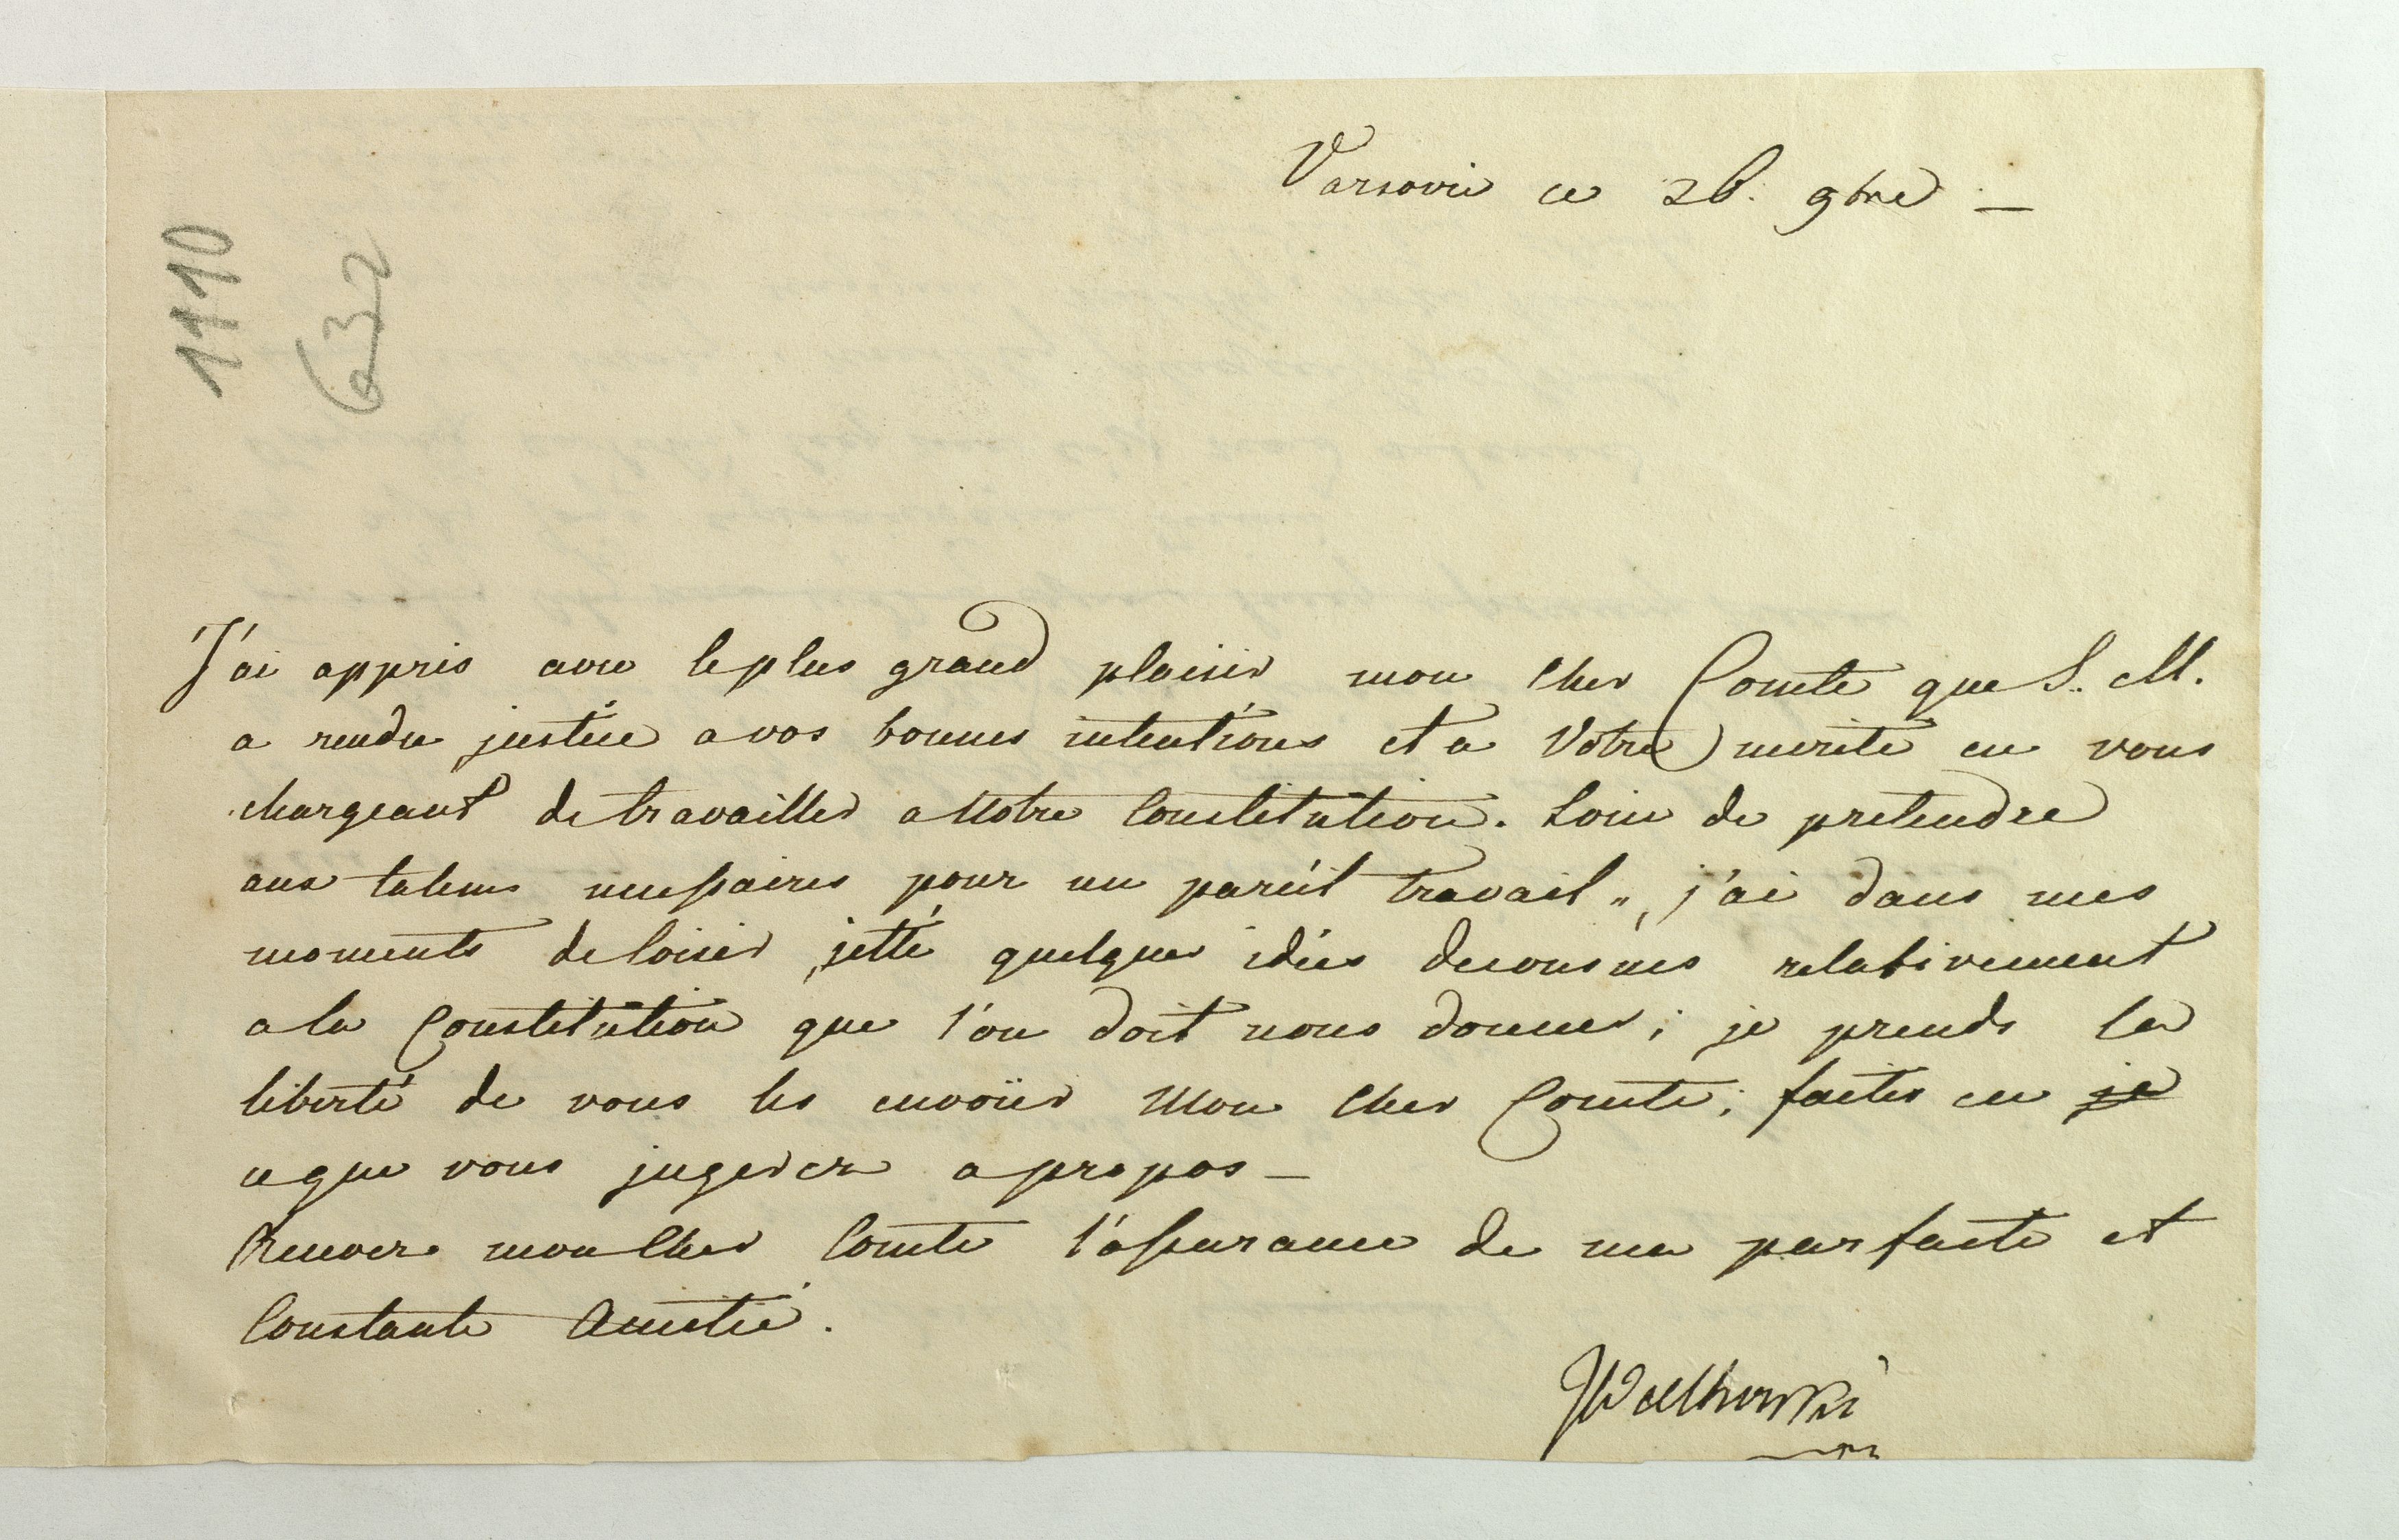 Varsovie ce 26. 9bre —
1110
632
J'ai appris avec le plus grand plaisir mon cher Comte que S. M.
a rendu justice a vos bonnes intentions et a Votre merite en vous
chargeant de travailler a Notre Constitution. Loin de pretendre
aux talens necessaires pour un pareil travail, j'ai dans mes
moments de loisir jetté quelques idées decousues relativement
a la Constitution que l'on doit nous donner; je prends la
liberté de vous les envoïer Mon cher Comte; faites en je
ce que vous jugerez a propos —
Recevez mon cher Comte l'assurance de ma parfaite et
Constante Amitié.